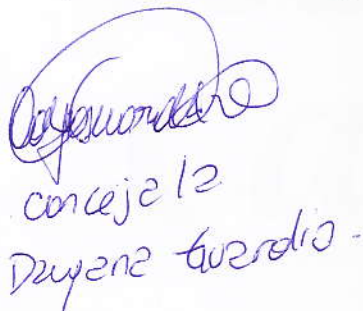 concejala
Dayana Guardia.